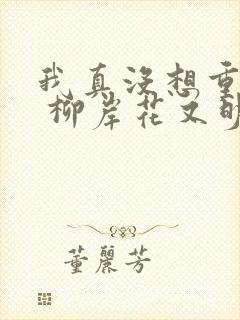 我真没想重
柳岸花又明
董丽芳